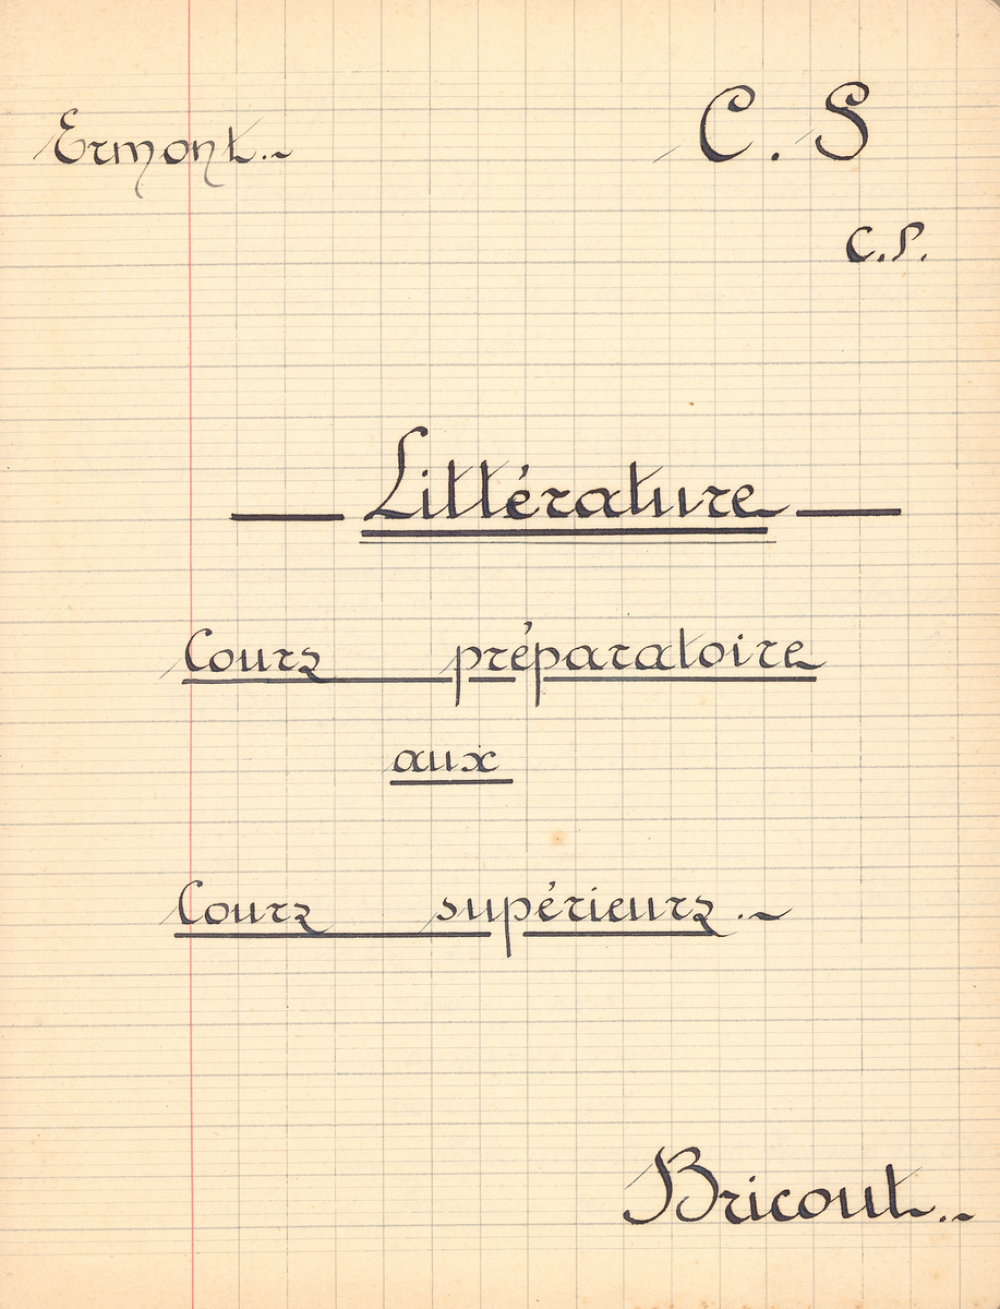 Ermont.~
C. S
C.P.
— Littérature —
Cours préparatoire
aux
Cours supérieurs.~
Bricout.~